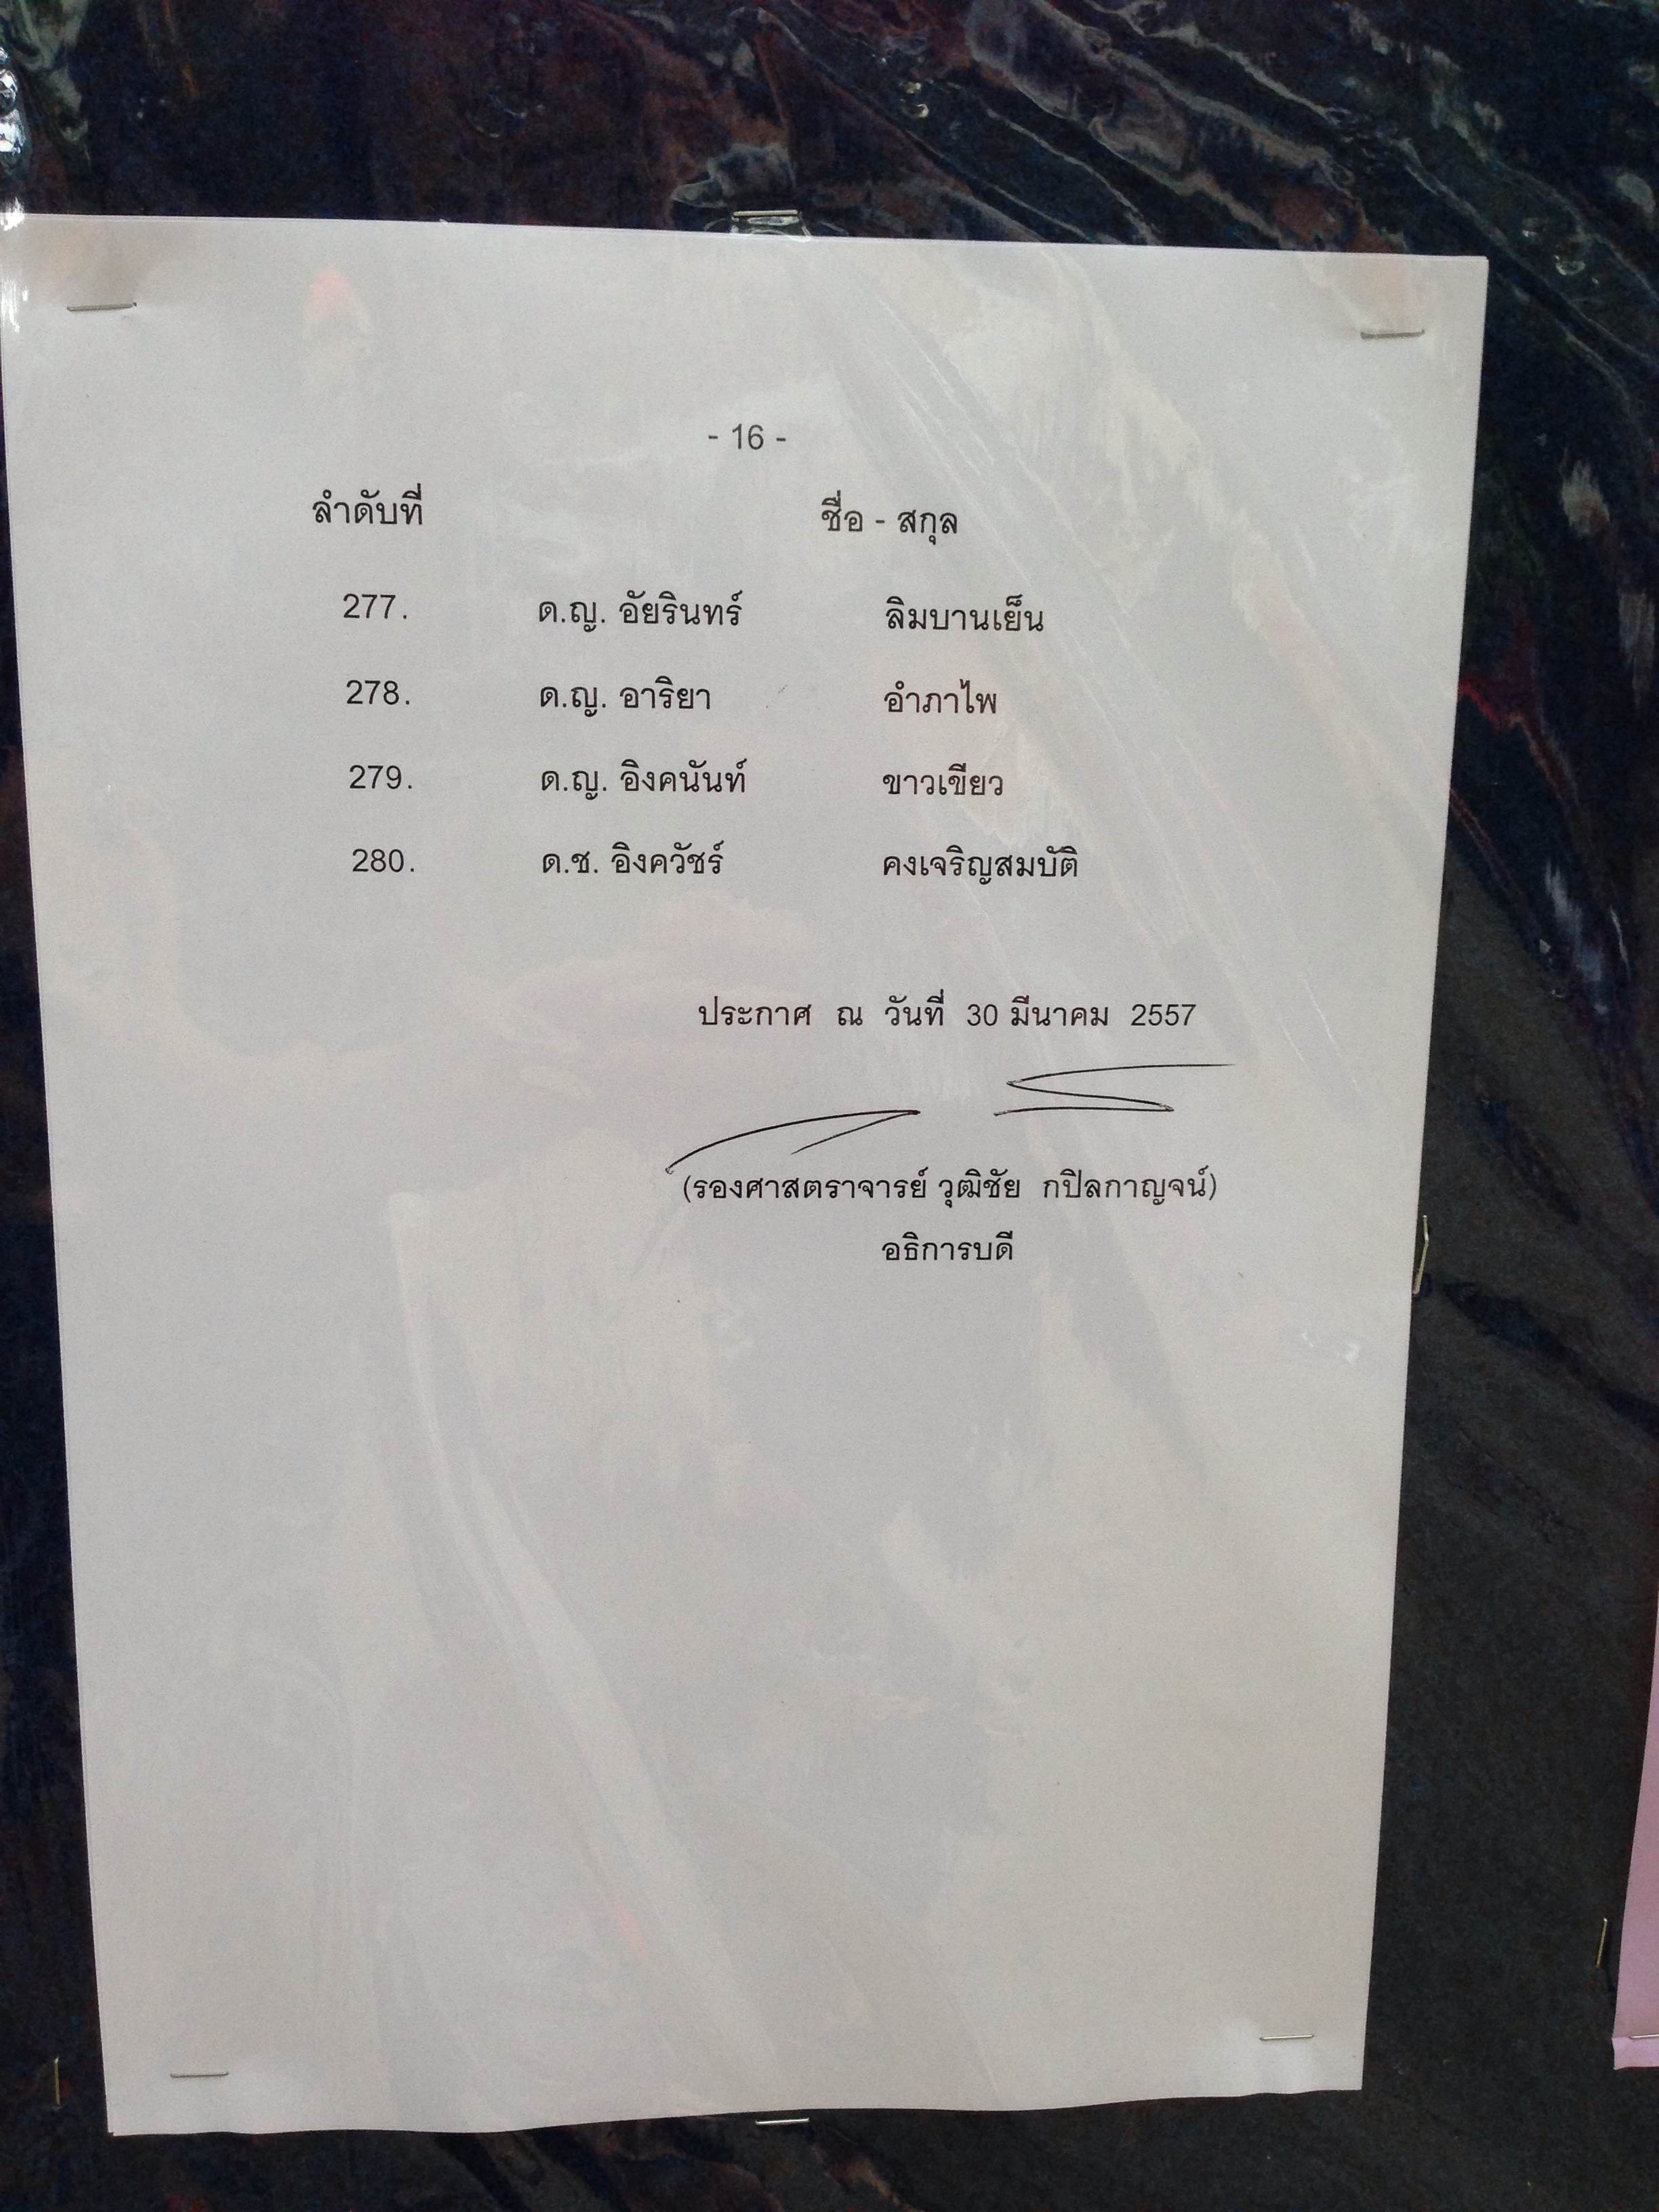 - 16 -
ลำดับที่ ชื่อ - สกุล
277. ด.ญ. อัยรินทร์ ลิมบานเย็น
278. ด.ญ. อาริยา อำภาไพ
279. ด.ญ. อิงคนันท์ ขาวเขียว
280. ด.ช. อิงควัชร์ คงเจริญสมบัติ
ประกาศ ณ วันที่ 30 มีนาคม 2557
(รองศาสตราจารย์ วุฒิชัย กปิลกาญจน์)
อธิการบดี